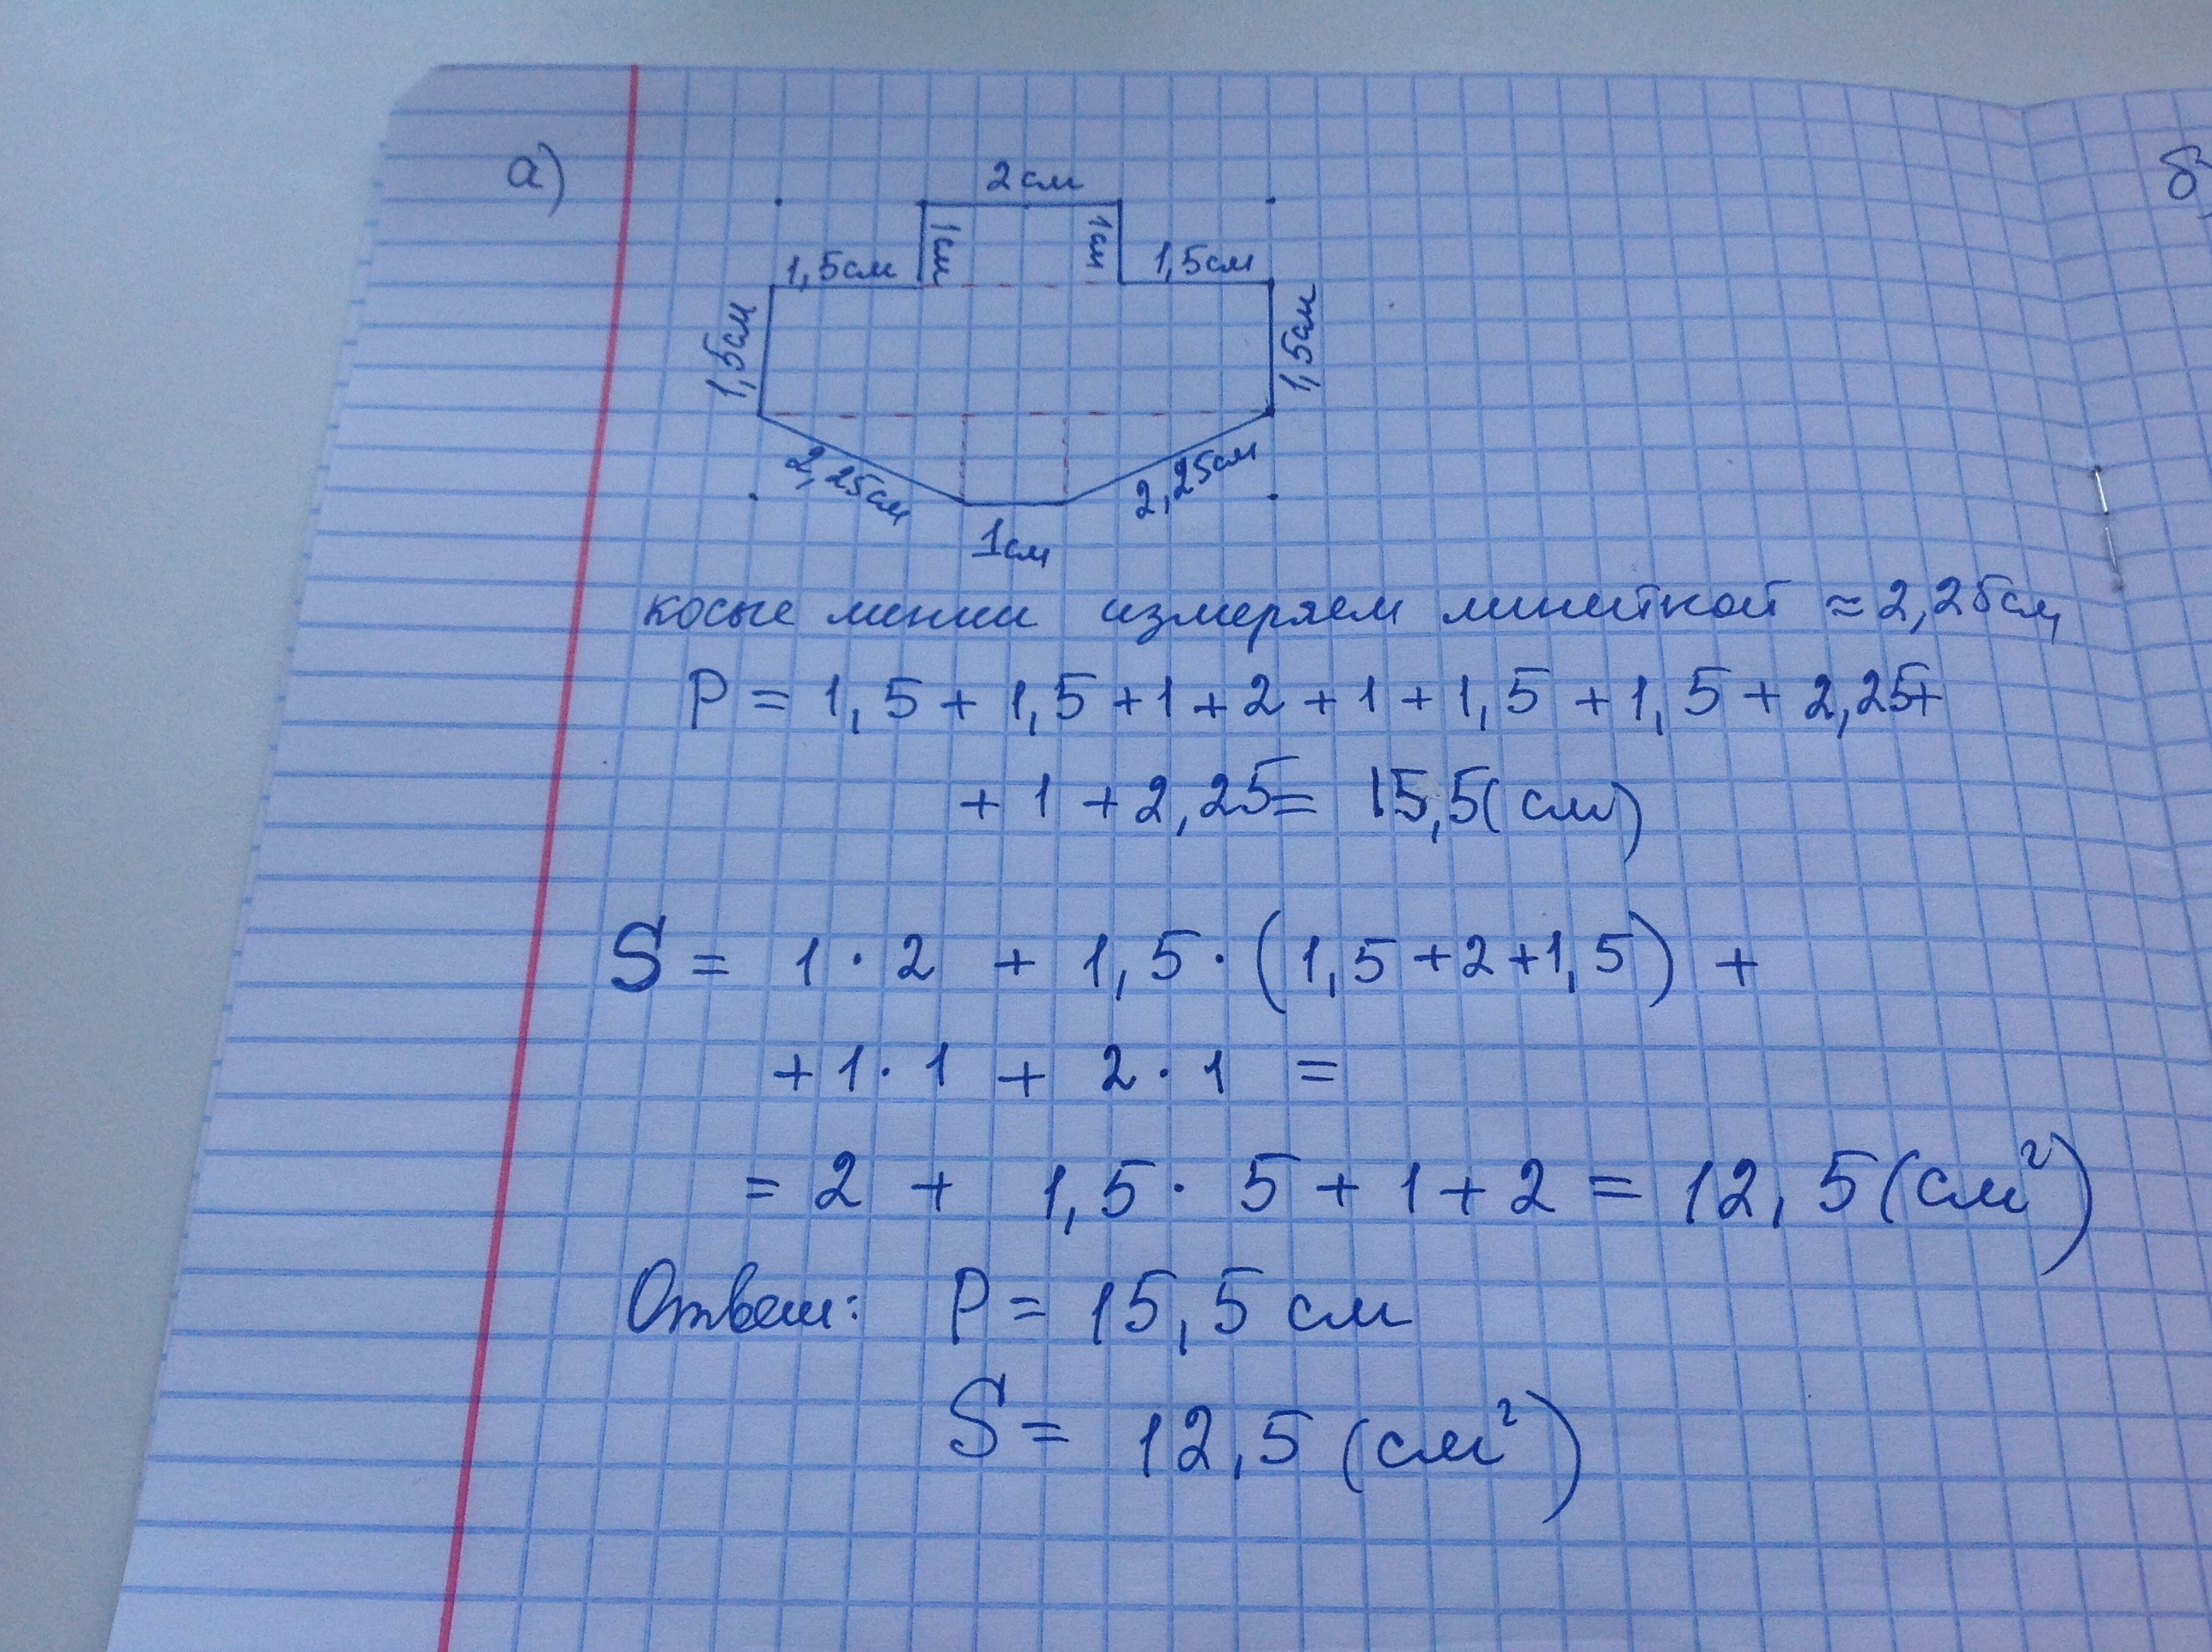 а)
б)
2 см
1см
1см
1,5см
1,5см
1,5см
1,5см
2,25см
2,25см
1см
косые линии измеряем линейкой ≈ 2,25см
P = 1,5 + 1,5 + 1 + 2 + 1 + 1,5 + 1,5 + 2,25+
+ 1 + 2,25 = 15,5(см)
S = 1 · 2 + 1,5 · (1,5 + 2 + 1,5) +
+ 1 · 1 + 2 · 1 =
= 2 + 1,5 · 5 + 1 + 2 = 12,5 (см²)
Ответ: P = 15,5 см
S = 12,5 (см²)